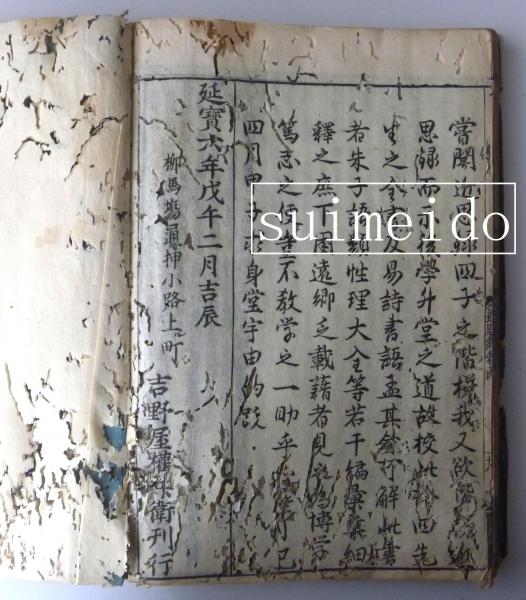 嘗聞近思録四子之階梯我又欲階
思録而不後學升堂之道故校此 四先
生之全書及易詩書語孟其餘可解此書
者朱子語類性理大全等若干編 細
釋之庶下困遠郷乏載藉者見 博学
篤志之 不教学之一助乎 已
四月 身堂宇由的跋
延寳六年戊午二月吉辰
柳馬場通押小路上町
吉野屋權兵衛刊行
suimeido